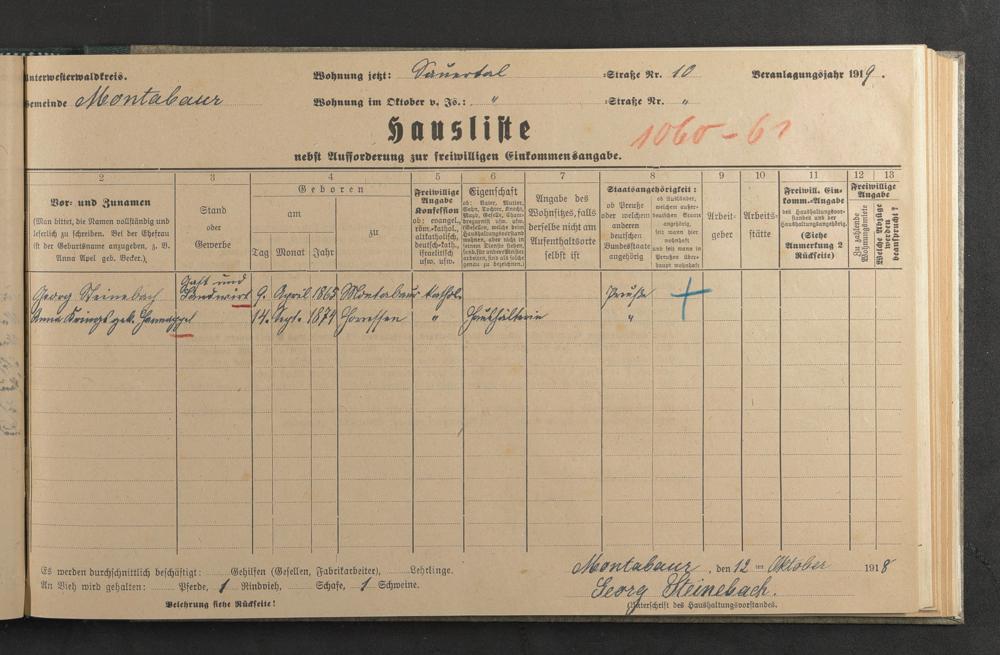 Unterwesterwaldkreis. Wohnung jetzt: Sauertal Straße Nr. 10 Veranlagungsjahr 1919.
Gemeinde Montabaur Wohnung im Oktober v. Js.: " Straße Nr. "
Hausliste 1060-61
nebst Aufforderung zur freiwilligen Einkommensangabe.
2 3 4 5 6 7 8 9 10 11 12 13
Vor- und Zunamen
(Man bittet, die Namen vollständig und
leserlich zu schreiben. Bei der Ehefrau
ist der Geburtsname anzugeben, z. B.
Anna Apel geb. Becker.)
Stand
oder
Gewerbe
Geboren
am
zu
Tag Monat Jahr
Freiwillige
Angabe
Konfession
ob: evangel.,
röm.-kathol.,
altkatholisch,
deutsch-kath.,
israelitisch
usw. usw.
Eigenschaft
ob: Vater, Mutter,
Sohn, Tochter, Knecht,
Magd, Geselle,
Angabe des
Wohnsitzes, falls
derselbe nicht am
Aufenthaltsorte
selbst ist
Staatsangehörigkeit:
ob Preuße
oder welchem
anderen
deutschen
Bundesstaate
angehörig
ob Ausländer,
welchem außer-
deutschen Staate
angehörig,
seit wann hier
wohnhaft
und seit wann in
Preußen über-
haupt wohnhaft
Arbeit-
geber
Arbeits-
stätte
Freiwill. Ein-
komm.-Angabe
des Haushaltungsvor-
standes und der
Haushaltungsangehörig.
(Siehe
Anmerkung 2
Rückseite)
Freiwillige
Angabe
Zu zahlende
Wohnungsmiete
Welche Abzüge
werden
beansprucht?
Gast und
Georg Steinebach Landwirt 9. April 1865 Montabaur kathol. Preuße
Anna Krings geb. Hannappel 14. Sept. 1874 Horressen " Haushälterin "
Es werden durchschnittlich beschäftigt: Gehilfen (Gesellen, Fabrikarbeiter), Lehrlinge.
An Vieh wird gehalten: Pferde, 1 Rindvieh, Schafe, 1 Schweine.
Belehrung siehe Rückseite!
Montabaur, den 12 ten Oktober 1918
Georg Steinebach.
(Unterschrift des Haushaltungsvorstandes.